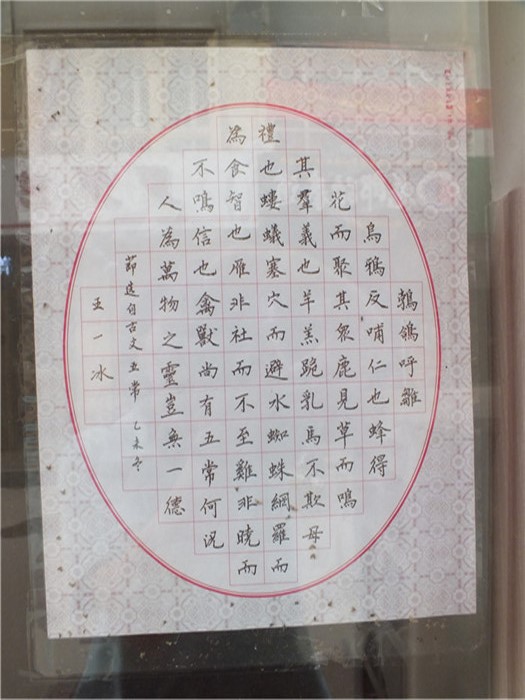 鵓鴿呼雛
烏鴉反哺仁也蜂得
花而聚其衆鹿見草而鳴
其羣義也羊羔跪乳馬不欺母
禮也螻蟻塞穴而避水蜘蛛網羅而
為食智也雁非社而不至雞非曉而
不鳴信也禽獸尚有五常何況
人為萬物之靈豈無一德
節選自古文五常 乙未冬
王一冰